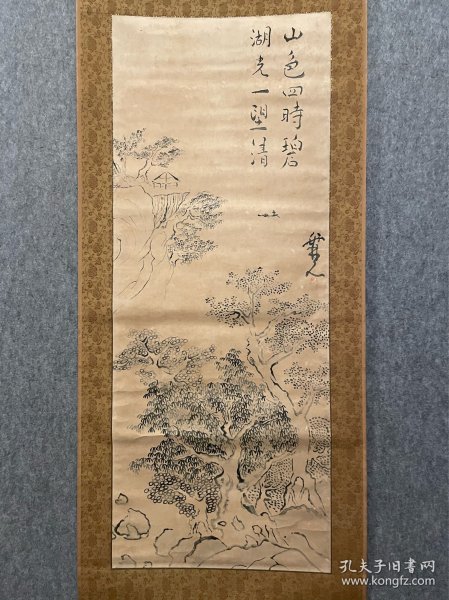 山色四時碧
湖光一望清
孔夫子旧书网
www.kongfz.com